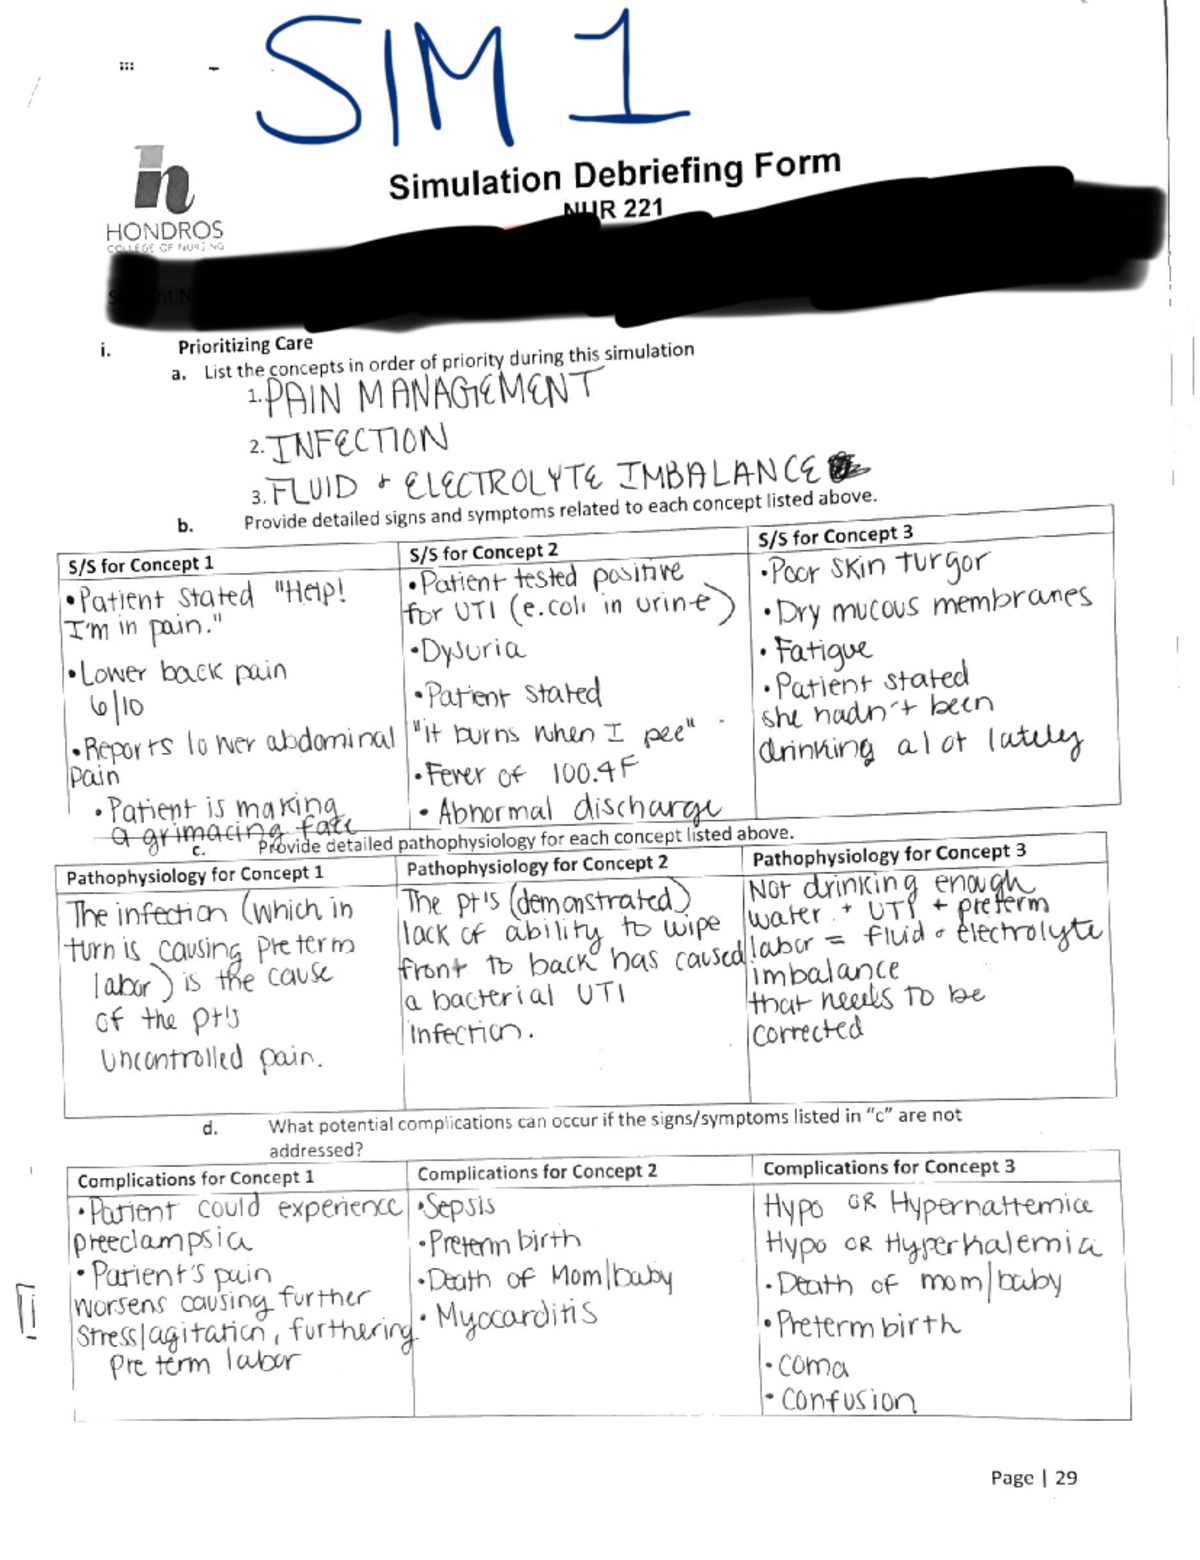 SIM 1
Simulation Debriefing Form
NUR 221
HONDROS
COLLEGE OF NURSING
i. Prioritizing Care
a. List the concepts in order of priority during this simulation
1. PAIN MANAGEMENT
2. INFECTION
3. FLUID + ELECTROLYTE IMBALANCE
b. Provide detailed signs and symptoms related to each concept listed above.
S/S for Concept 1
• Patient stated "Help!
I'm in pain."
• Lower back pain
6/10
• Reports lower abdominal
pain
• Patient is making
a grimacing face
S/S for Concept 2
• Patient tested positive
for UTI (e.coli in urine)
• Dysuria
• Patient stated
"it burns when I pee"
• Fever of 100.4F
• Abnormal discharge
S/S for Concept 3
• Poor skin turgor
• Dry mucous membranes
• Fatigue
• Patient stated
she hadn't been
drinking a lot lately
c. Provide detailed pathophysiology for each concept listed above.
Pathophysiology for Concept 1
The infection (which in
turn is causing preterm
labor) is the cause
of the pt's
uncontrolled pain.
Pathophysiology for Concept 2
The pt's (demonstrated)
lack of ability to wipe
front to back has caused
a bacterial UTI
infection.
Pathophysiology for Concept 3
Not drinking enough
water + UTI + preterm
labor = fluid + electrolyte
imbalance
that needs to be
corrected
d. What potential complications can occur if the signs/symptoms listed in "c" are not
addressed?
Complications for Concept 1
• Patient could experience
preeclampsia
• Patient's pain
worsens causing further
stress/agitation, furthering
pre term labor
Complications for Concept 2
• Sepsis
• Preterm birth
• Death of Mom/baby
• Myocarditis
Complications for Concept 3
Hypo OR Hypernattemia
Hypo OR Hyperkalemia
• Death of mom/baby
• Preterm birth
• coma
• confusion
Page | 29